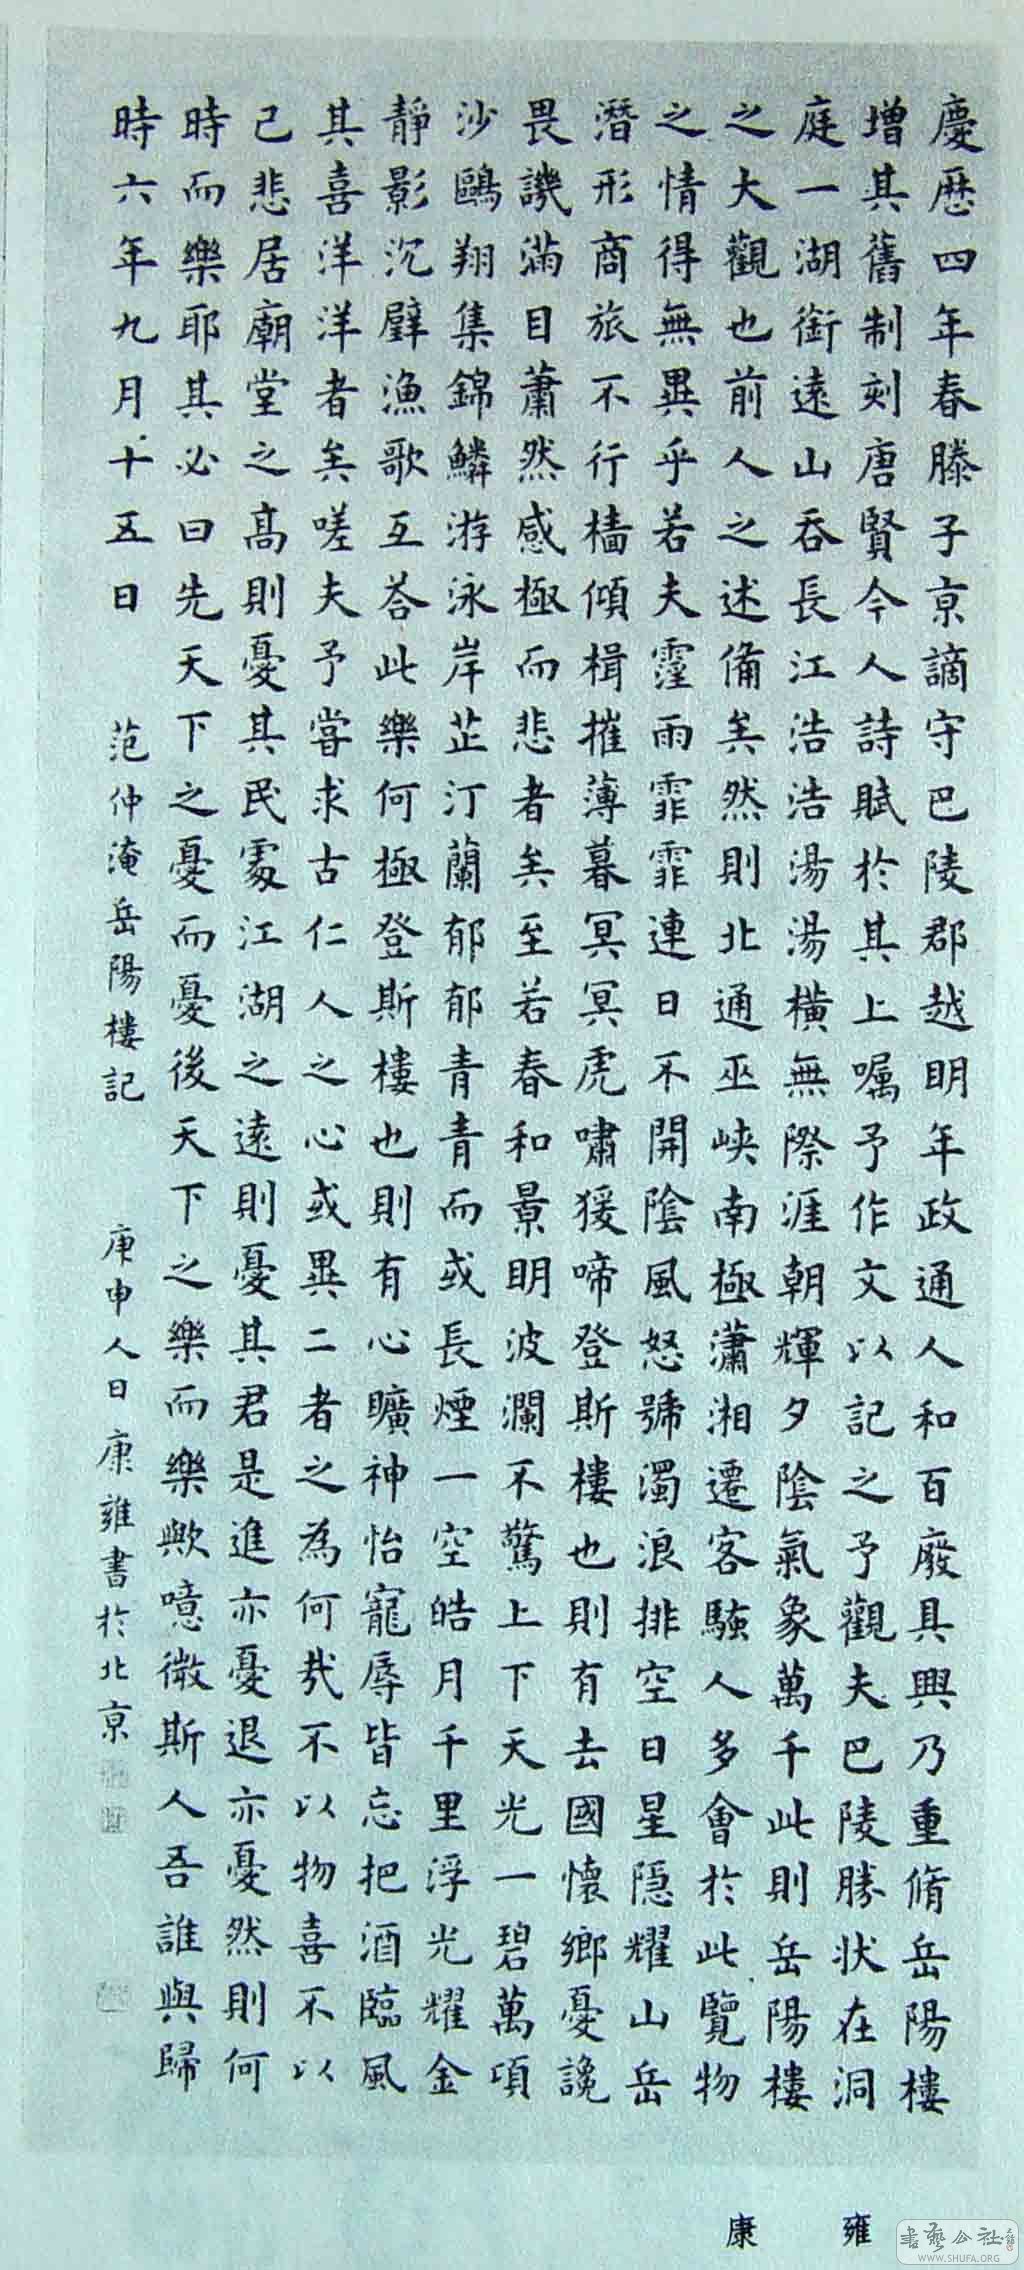 慶歷四年春滕子京謫守巴陵郡越明年政通人和百廢具興乃重脩岳陽樓
增其舊制刻唐賢今人詩賦於其上囑予作文以記之予觀夫巴陵勝狀在洞
庭一湖銜遠山吞長江浩浩湯湯橫無際涯朝輝夕陰氣象萬千此則岳陽樓
之大觀也前人之述備矣然則北通巫峽南極瀟湘遷客騷人多會於此覽物
之情得無異乎若夫霪雨霏霏連日不開陰風怒號濁浪排空日星隱耀山岳
潛形商旅不行檣傾楫摧薄暮冥冥虎嘯猨啼登斯樓也則有去國懷鄉憂讒
畏譏滿目蕭然感極而悲者矣至若春和景明波瀾不驚上下天光一碧萬頃
沙鷗翔集錦鱗游泳岸芷汀蘭郁郁青青而或長煙一空皓月千里浮光耀金
靜影沉璧漁歌互荅此樂何極登斯樓也則有心曠神怡寵辱皆忘把酒臨風
其喜洋洋者矣嗟夫予嘗求古仁人之心或異二者之為何哉不以物喜不以
己悲居廟堂之高則憂其民處江湖之遠則憂其君是進亦憂退亦憂然則何
時而樂耶其必曰先天下之憂而憂後天下之樂而樂歟噫微斯人吾誰與歸
時六年九月十五日 范仲淹岳陽樓記 庚申人日康雍書於北京
康 雍
書藝公社
WWW.SHUFA.ORG